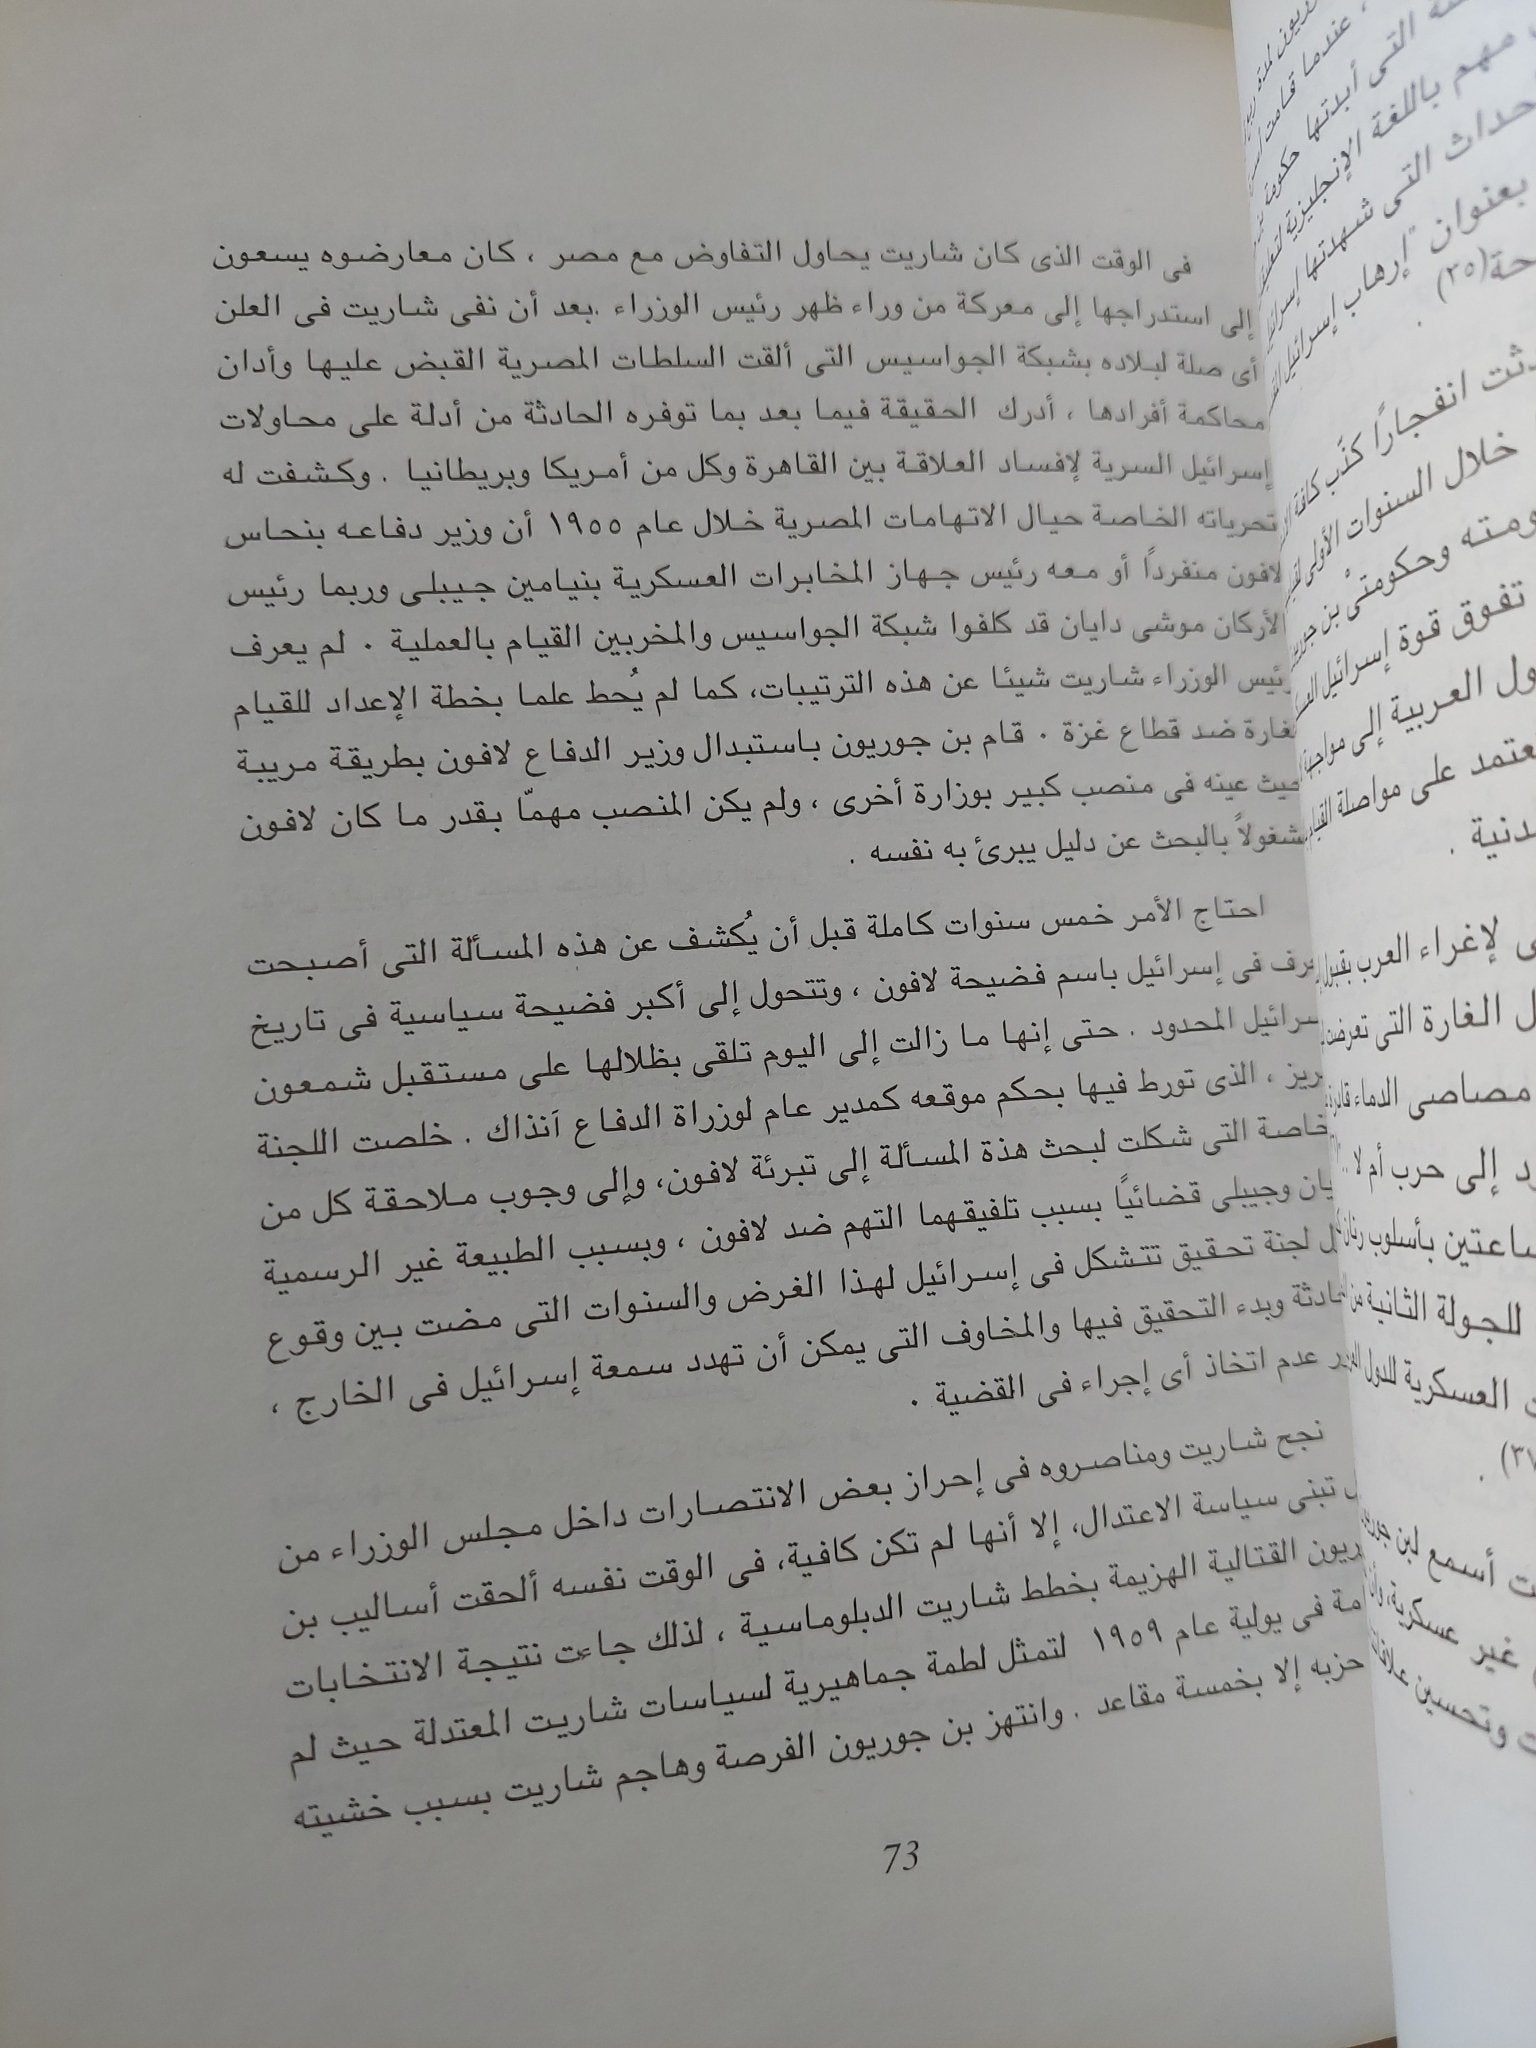 فى الوقت الذى كان شاريت يحاول التفاوض مع مصر ، كان معارضوه يسعون
إلى استدراجها إلى معركة من وراء ظهر رئيس الوزراء .بعد أن نفى شاريت فى العلن
أى صلة لبلاده بشبكة الجواسيس التى ألقت السلطات المصرية القبض عليها وأدان
محاكمة أفرادها ، أدرك الحقيقة فيما بعد بما توفره الحادثة من أدلة على محاولات
إسرائيل السرية لإفساد العلاقة بين القاهرة وكل من أمريكا وبريطانيا . وكشفت له
تحرياته الخاصة حيال الاتهامات المصرية خلال عام ١٩٥٥ أن وزير دفاعه بنحاس
لافون منفرداً أو معه رئيس جهاز المخابرات العسكرية بنيامين جيبلى وربما رئيس
الأركان موشى دايان قد كلفوا شبكة الجواسيس والمخربين القيام بالعملية ٠ لم يعرف
رئيس الوزراء شاريت شيئا عن هذه الترتيبات، كما لم يُحط علما بخطة الإعداد للقيام
بغارة ضد قطاع غزة ٠ قام بن جوريون باستبدال وزير الدفاع لافون بطريقة مريبة
حيث عينه فى منصب كبير بوزارة أخرى ، ولم يكن المنصب مهمّا بقدر ما كان لافون
مشغولاً بالبحث عن دليل يبرئ به نفسه .
احتاج الأمر خمس سنوات كاملة قبل أن يُكشف عن هذه المسألة التى أصبحت
فى إسرائيل باسم فضيحة لافون ، وتتحول إلى أكبر فضيحة سياسية فى تاريخ
إسرائيل المحدود . حتى إنها ما زالت إلى اليوم تلقى بظلالها على مستقبل شمعون
، الذى تورط فيها بحكم موقعه كمدير عام لوزراة الدفاع آنذاك . خلصت اللجنة
الخاصة التى شكلت لبحث هذة المسألة إلى تبرئة لافون، وإلى وجوب ملاحقة كل من
وجيبلى قضائيًا بسبب تلفيقهما التهم ضد لافون ، وبسبب الطبيعة غير الرسمية
لجنة تحقيق تتشكل فى إسرائيل لهذا الغرض والسنوات التى مضت بين وقوع
الحادثة وبدء التحقيق فيها والمخاوف التى يمكن أن تهدد سمعة إسرائيل فى الخارج ،
عدم اتخاذ أى إجراء فى القضية ٠
نجح شاريت ومناصروه فى إحراز بعض الانتصارات داخل مجلس الوزراء من
تبنى سياسة الاعتدال، إلا أنها لم تكن كافية، فى الوقت نفسه ألحقت أساليب بن
جوريون القتالية الهزيمة بخطط شاريت الدبلوماسية ، لذلك جاءت نتيجة الانتخابات
فى يولية عام ١٩٥٩ لتمثل لطمة جماهيرية لسياسات شاريت المعتدلة حيث لم
حزبه إلا بخمسة مقاعد . وانتهز بن جوريون الفرصة وهاجم شاريت بسبب خشيته
73
التى أبدتها حكومة
مهم باللغة الإنجليزية
التى شهدتها
بعنوان "إرهاب إسرائيل
(٣٥)
انفجارًا كذّب كافة
خلال السنوات الأولى
وحكومتىْ بن
تفوق قوة إسرائيل
العربية إلى مواجهة
على مواصلة
لإغراء العرب بقبول
الغارة التى
مصاصى الدماء
إلى حرب أم لا
بأسلوب
للجولة الثانية من
العسكرية للدول
أسمع لبن
غير عسكرية
وتحسين